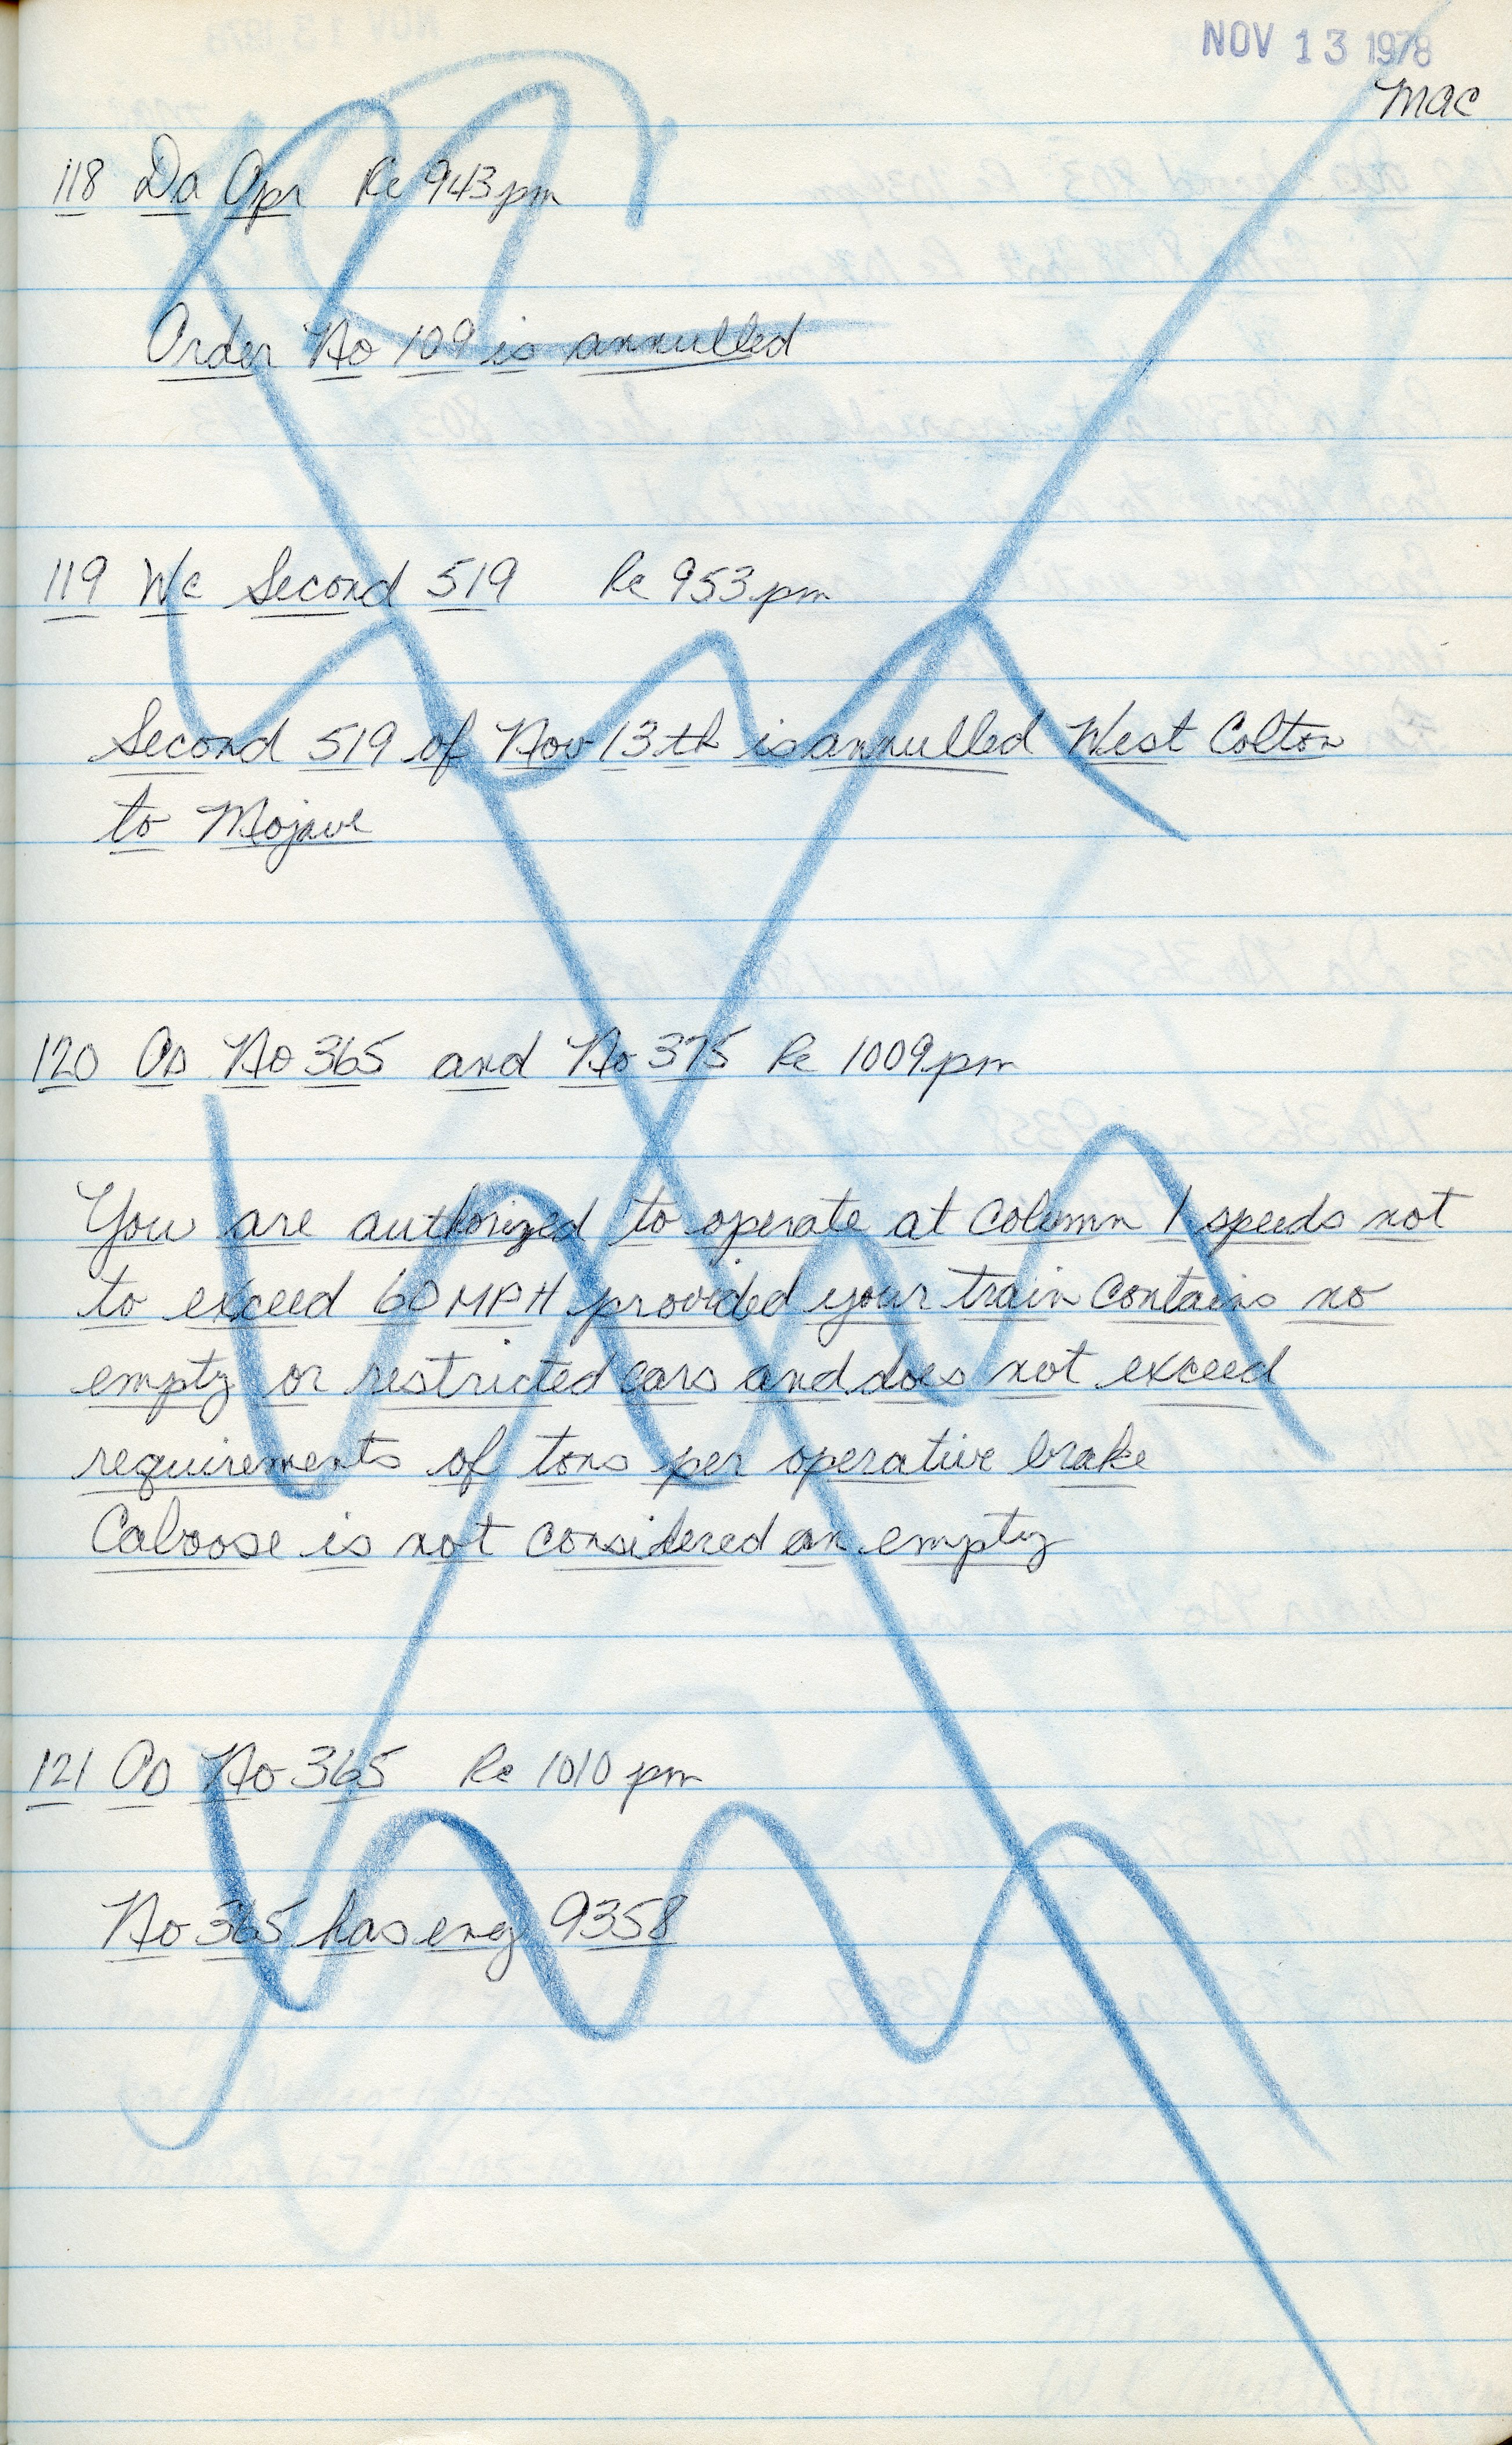 NOV 13 1978
Mac
118 Da Opr Re 943 pm
Order No 109 is annulled
119 Wc Second 519 Re 953 pm
Second 519 of Nov 13th is annulled West Colton
to Mojave
120 Os No 365 and No 375 Re 1009 pm
You are authorized to operate at column 1 speeds not
to exceed 60 MPH provided your train contains no
empty or restricted cars and does not exceed
requirements of tons per operative brake
Caboose is not considered an empty
121 Os No 365 Re 1010 pm
No 365 has eng 9358